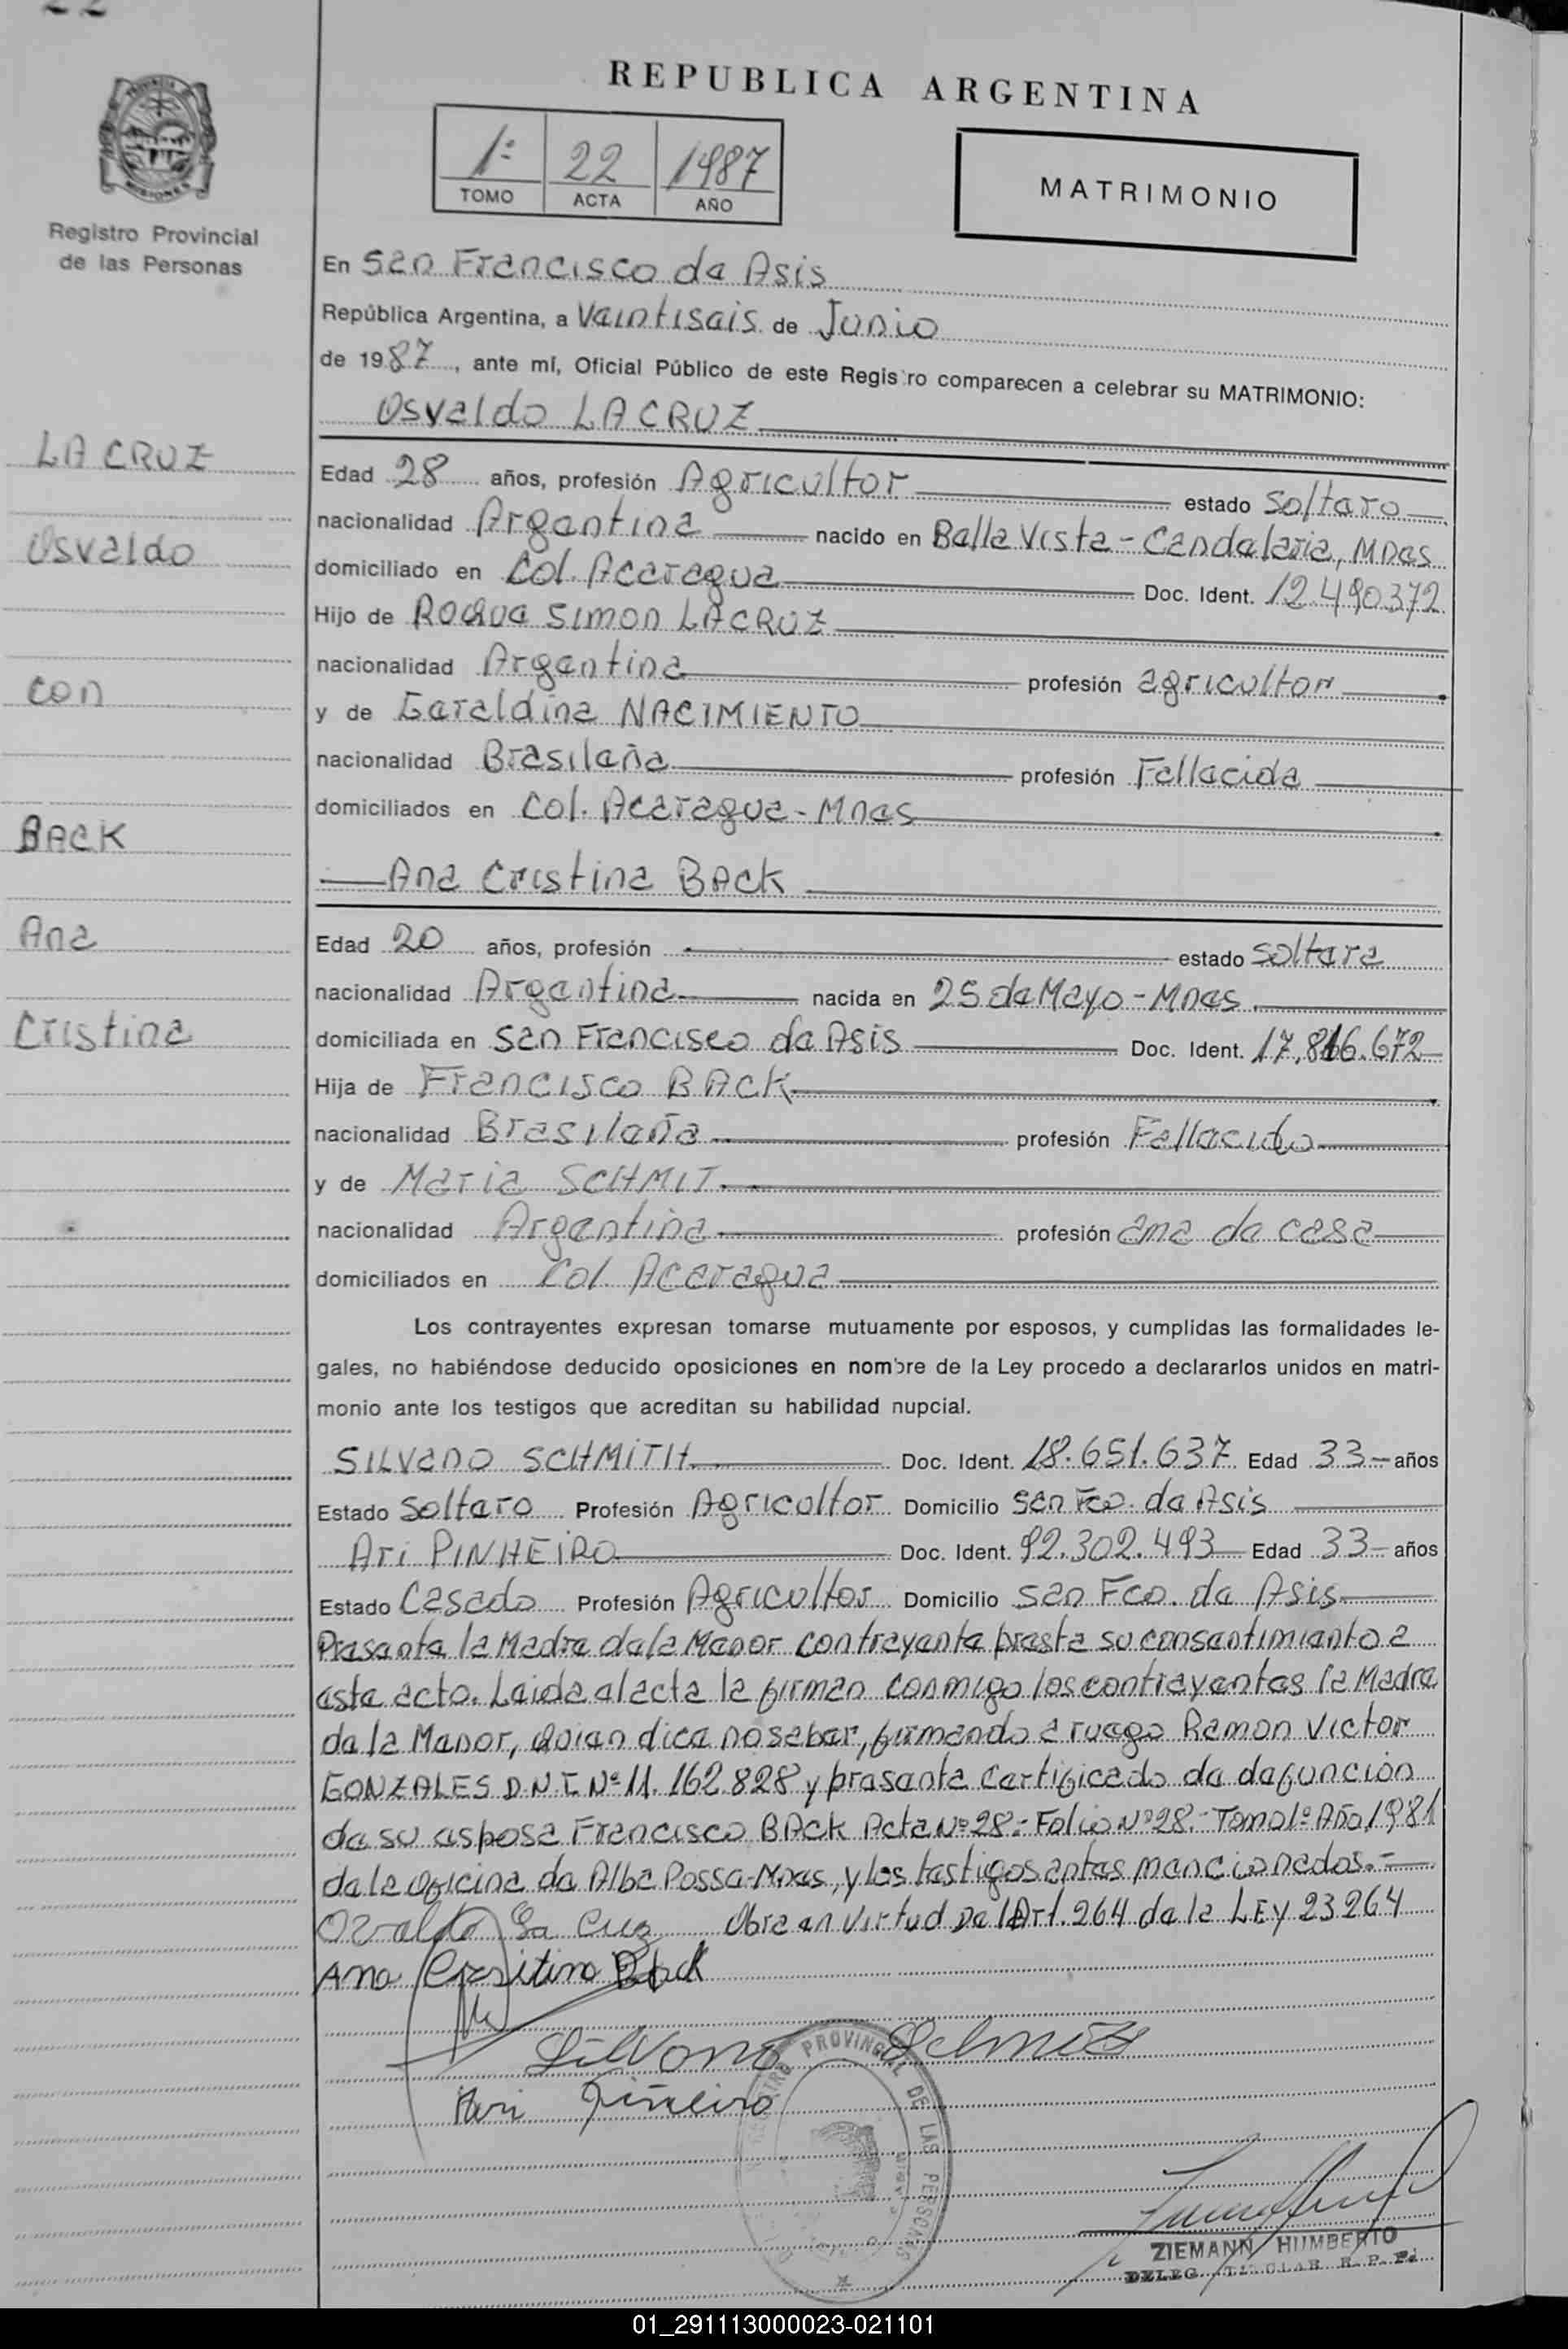 22
REPUBLICA ARGENTINA
1º 22 1987
TOMO ACTA AÑO
MATRIMONIO
MISIONES
Registro Provincial
de las Personas
En San Francisco de Asis
República Argentina, a Veintiseis de Junio
de 1987, ante mí, Oficial Público de este Registro comparecen a celebrar su MATRIMONIO:
Osvaldo LA CRUZ
LA CRUZ
Osvaldo
con
BACK
Ana
Cristina
Edad 28 años, profesión Agricultor estado soltero
nacionalidad Argentina nacido en Bella Vista - Candelaria, Mnes
domiciliado en Col. Acaragua Doc. Ident. 12.490372
Hijo de Roque Simon LACRUZ
nacionalidad Argentina profesión agricultor
y de Geraldina NACIMIENTO
nacionalidad Brasileña profesión Fallecida
domiciliados en Col. Acaragua - Mnes
Ana Cristina BACK
Edad 20 años, profesión estado soltera
nacionalidad Argentina nacida en 25 de Mayo - Mnes
domiciliada en San Francisco de Asis Doc. Ident. 17.816.672
Hija de Francisco BACK
nacionalidad Brasileña profesión Fallecido
y de Maria SCHMIT
nacionalidad Argentina profesión ama de casa
domiciliados en Col. Acaragua
Los contrayentes expresan tomarse mutuamente por esposos, y cumplidas las formalidades le-
gales, no habiéndose deducido oposiciones en nombre de la Ley procedo a declararlos unidos en matri-
monio ante los testigos que acreditan su habilidad nupcial.
SILVANO SCHMITH Doc. Ident. 18.651.637 Edad 33 años
Estado Soltero Profesión Agricultor Domicilio San Fco. de Asis
Ari PINHEIRO Doc. Ident. 92.302.493 Edad 33 años
Estado Casado Profesión Agricultor Domicilio San Fco. de Asis
Presente la Madre de la Menor contrayente presta su consentimiento a
este acto. Leida el acta la firman conmigo los contrayentes la Madre
de la Menor, quien dice no saber, firmando a ruego Ramon Victor
GONZALES D.N.I. Nº 11.162.828 y presenta certificado de defuncion
de su esposo Francisco BACK Acta Nº 28.- Folio Nº 28.- Tomo 1º Año 1981
de la oficina de Alba Posse-Mnes, y los testigos antes mencionados.-
Ozvaldo La Cruz Obra en Virtud Del Art. 264 de la LEY 23264
Ana Crsitina Back
Silvano Schmitt
Ari Piñeiro
REGISTRO PROVINCIAL DE LAS PERSONAS
ZIEMANN HUMBERTO
DELEG. TITULAR R. P. P.
01_291113000023-021101